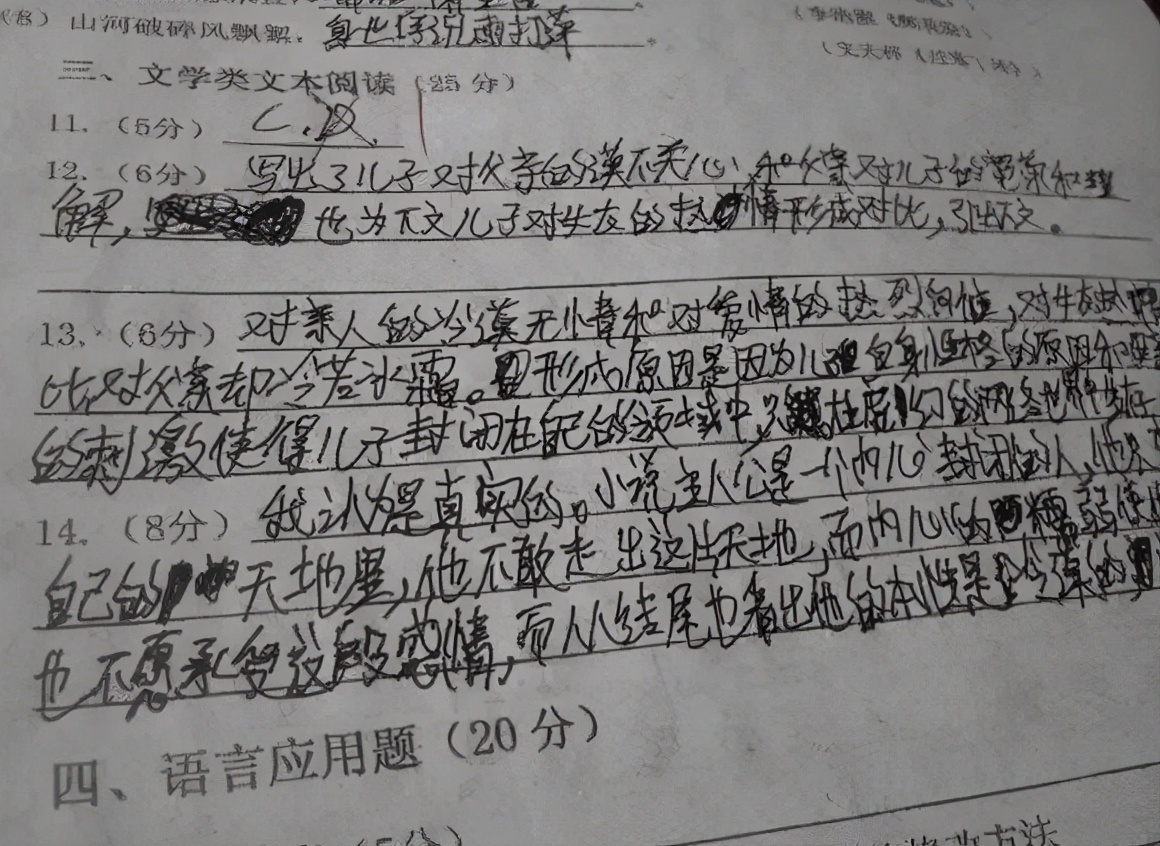 山河破碎风飘絮，身世浮沉雨打萍。
三、文学类文本阅读（25分）
11.（5分）C.D.
12.（6分）写出了儿子对父亲的冷漠不关心，和父亲对儿子的宽荣和理
解，也为下文儿子对失友的热情形成对比，引出下文。
13.（6分）对亲人的冷漠无情和对爱情的热烈向值，对失友热
比对父亲却冷若冰霜。形成原因是因为儿自身性格的原因和
的刺激使得儿子封闭在自己的领域中，在虚幻的网络世界
14.（8分）我认为是真实的。小说主人公是一个内心封闭的人，他只
自己的天地里，他不敢走出这片天地，而内心的懦弱使他
也不愿承受这段感情，而从结尾也看出他的本性是冷漠的
四、语言应用题（20分）
（5分）
修改方法